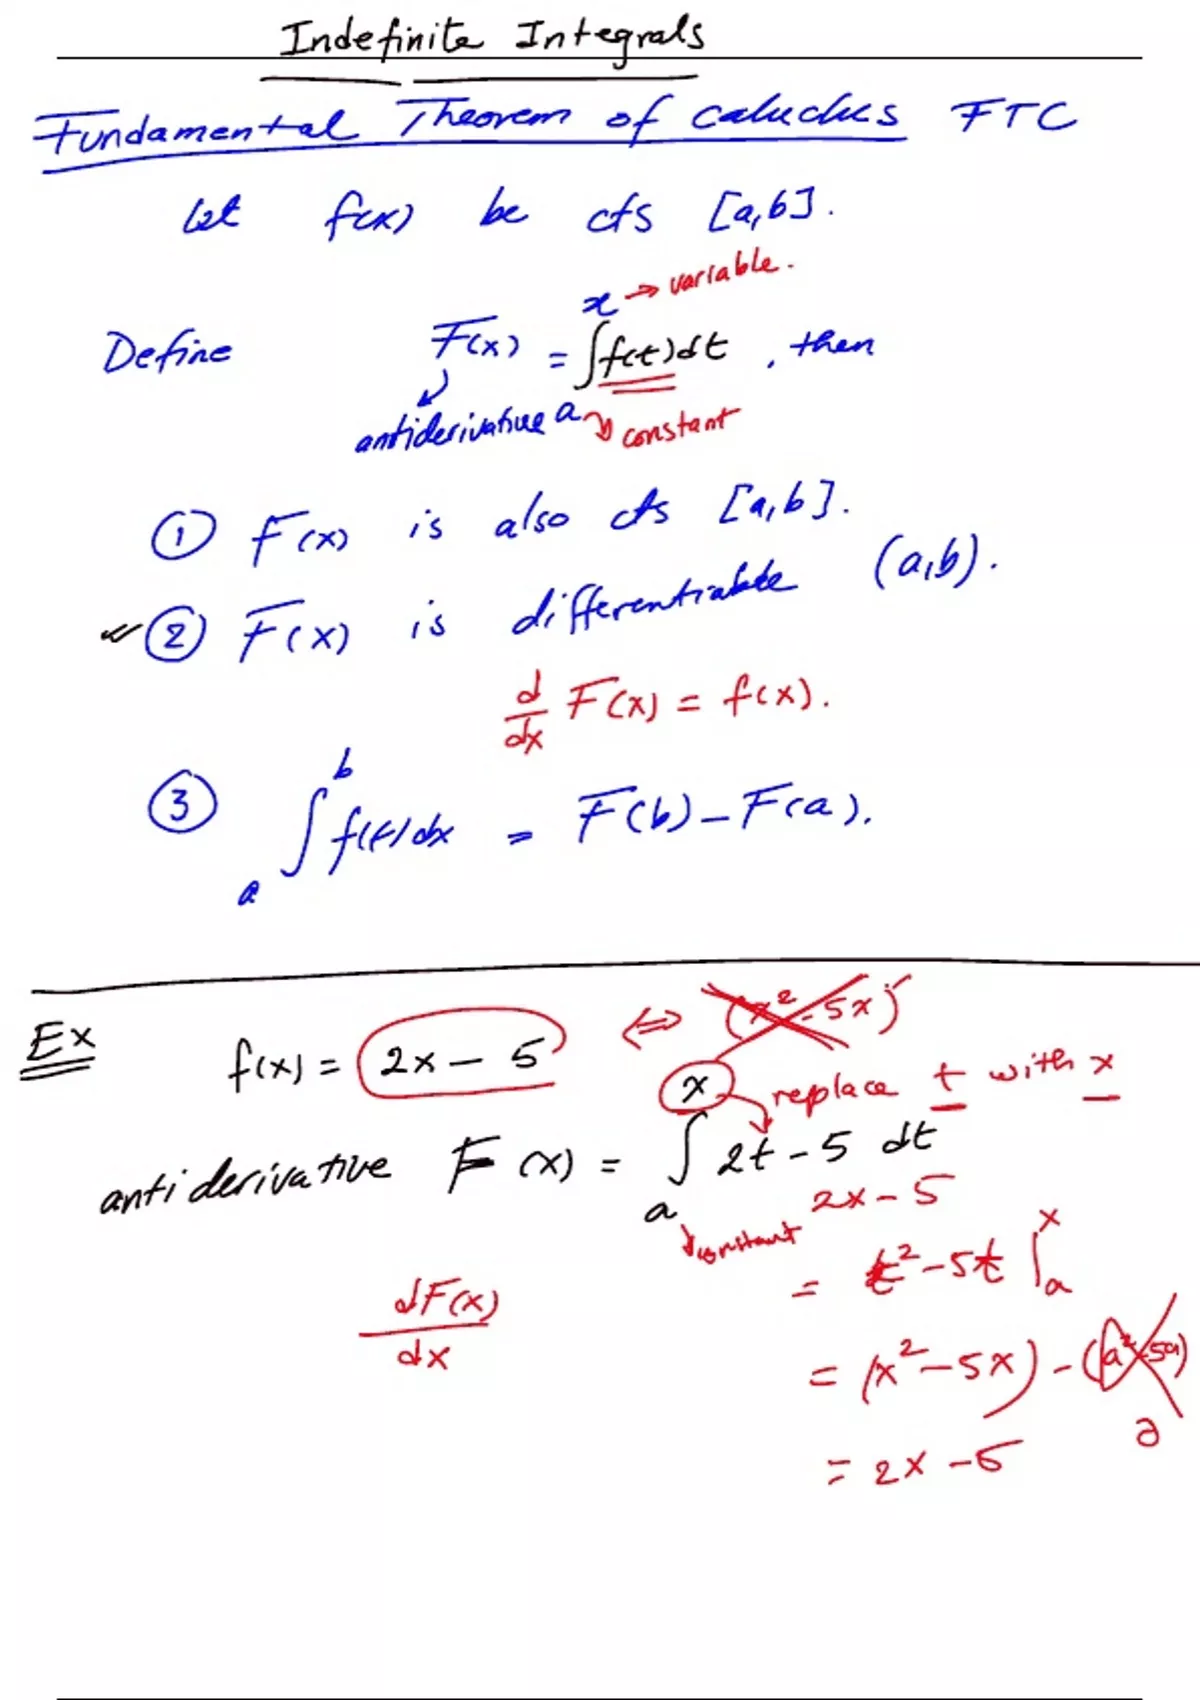 Indefinite Integrals
Fundamental Theorem of Caluclus FTC
Let f(x) be cts [a,b].
x → variable.
Define F(x) = ∫f(t)dt , then
antiderivative a → constant
① F(x) is also cts [a,b].
② F(x) is differentiable (a,b).
d/dx F(x) = f(x).
b
③ ∫ f(t)dx = F(b) - F(a).
a
Ex f(x) = 2x - 5 ⇔ (x² - 5x)'
x replace t with x
antiderivative F(x) = ∫ 2t - 5 dt
a constant 2x - 5
= t² - 5t |ₐˣ
dF(x)/dx
= (x² - 5x) - (a² - 5a)
= 2x - 5